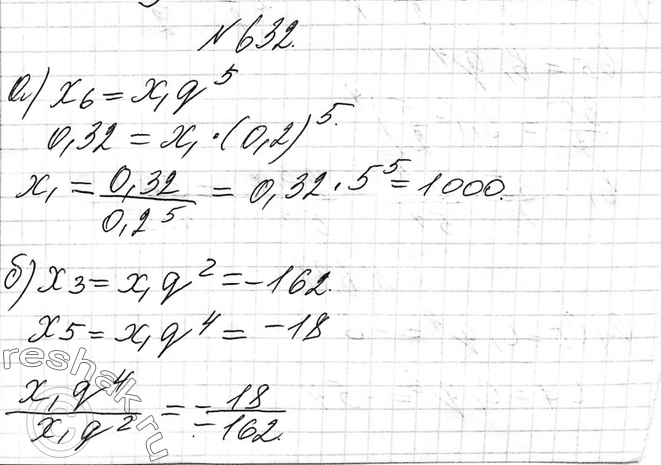 №632.
а) x₆ = x₁q⁵
0,32 = x₁·(0,2)⁵.
x₁ = 0,32/0,2⁵ = 0,32·5⁵ = 1000.
б) x₃ = x₁q² = -162.
x₅ = x₁q⁴ = -18
x₁q⁴/x₁q² = -18/-162.
reshak.ru